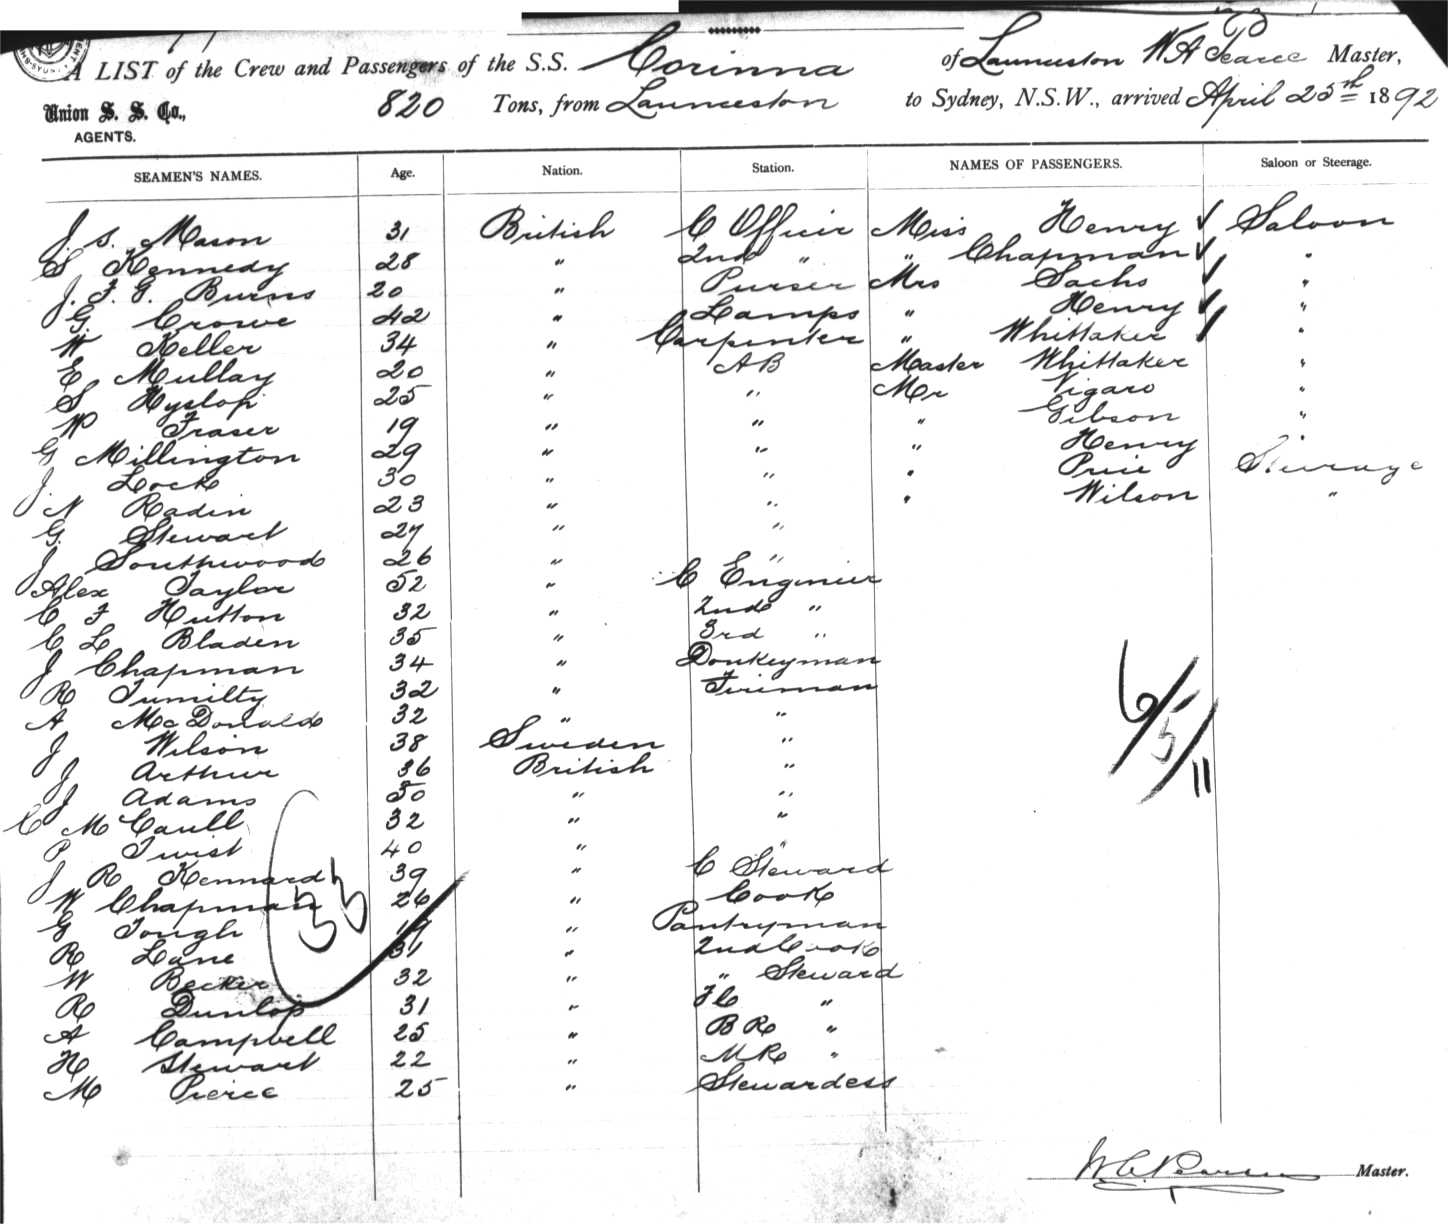 A LIST of the Crew and Passengers of the S.S. Corinna of Launceston W A Pearce Master,
Union S. S. Co., 820 Tons, from Launceston to Sydney, N.S.W., arrived April 25th 1892
AGENTS.
SEAMEN'S NAMES. Age. Nation. Station. NAMES OF PASSENGERS. Saloon or Steerage.
J. S. Mason 31 British C Officer Miss Henry ✓ Saloon
S Kennedy 28 " 2nd " " Chapman ✓ "
J. F. G. Burns 20 " Purser Mrs Sachs ✓ "
G. Crowe 42 " Lamps " Henry ✓ "
W Keller 34 " Carpenter " Whittaker ✓ "
E Mullay 20 " AB Master Whittaker "
S Hyslop 25 " " Mr Vigaro "
W Fraser 19 " " " Gibson "
G Millington 29 " " " Henry "
J. Lock 30 " " " Price Steerage
N Radin 23 " " " Wilson "
G. Stewart 27 " "
J Southwood 26 " "
Alex Taylor 52 " C Engineer
C F Hutton 32 " 2nd "
C L Bladen 35 " 3rd "
J Chapman 34 " Donkeyman
R Tumilty 32 " Fireman
A McDonald 32 " "
J Wilson 38 Sweden "
J Arthur 36 British "
J Adams 50 " "
C McCaull 32 " "
P Twist 40 " "
J R Kennard 39 " C Steward
W Chapman 26 " Cook
G Tough 19 " Pantryman
R Lane 31 " 2nd Cook
W Becker 32 " " Steward
R Dunlop 31 " F C "
A Campbell 25 " B R "
H Stewart 22 " M R "
M Pierce 25 " Stewardess
33
6/5/11
Master.